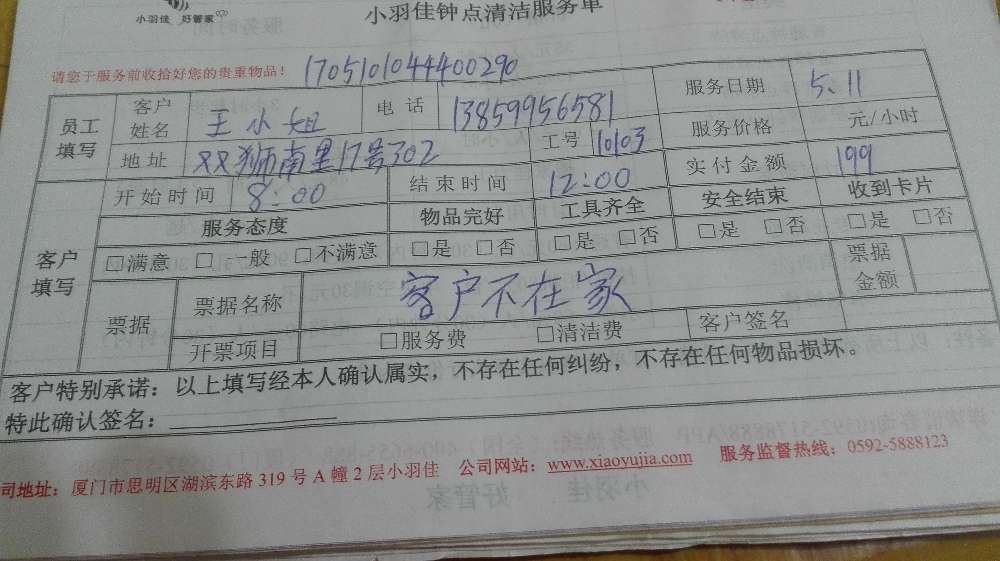 小羽佳 好管家
小羽佳钟点清洁服务单
请您于服务前收拾好您的贵重物品! 170510104440290
员工填写 客户姓名 王小姐 电话 13859956581 服务日期 5.11
地址 双狮南里17号302 工号 10103 服务价格 元/小时
客户填写 开始时间 8:00 结束时间 12:00 实付金额 199
服务态度 物品完好 工具齐全 安全结束 收到卡片
□满意 □一般 □不满意 □是 □否 □是 □否 □是 □否 □是 □否
票据 票据名称 客户不在家 票据金额
开票项目 □服务费 □清洁费 客户签名
客户特别承诺：以上填写经本人确认属实，不存在任何纠纷，不存在任何物品损坏。
特此确认签名：
司地址：厦门市思明区湖滨东路 319 号 A 幢 2 层小羽佳 公司网站：www.xiaoyujia.com 服务监督热线：0592-5888123